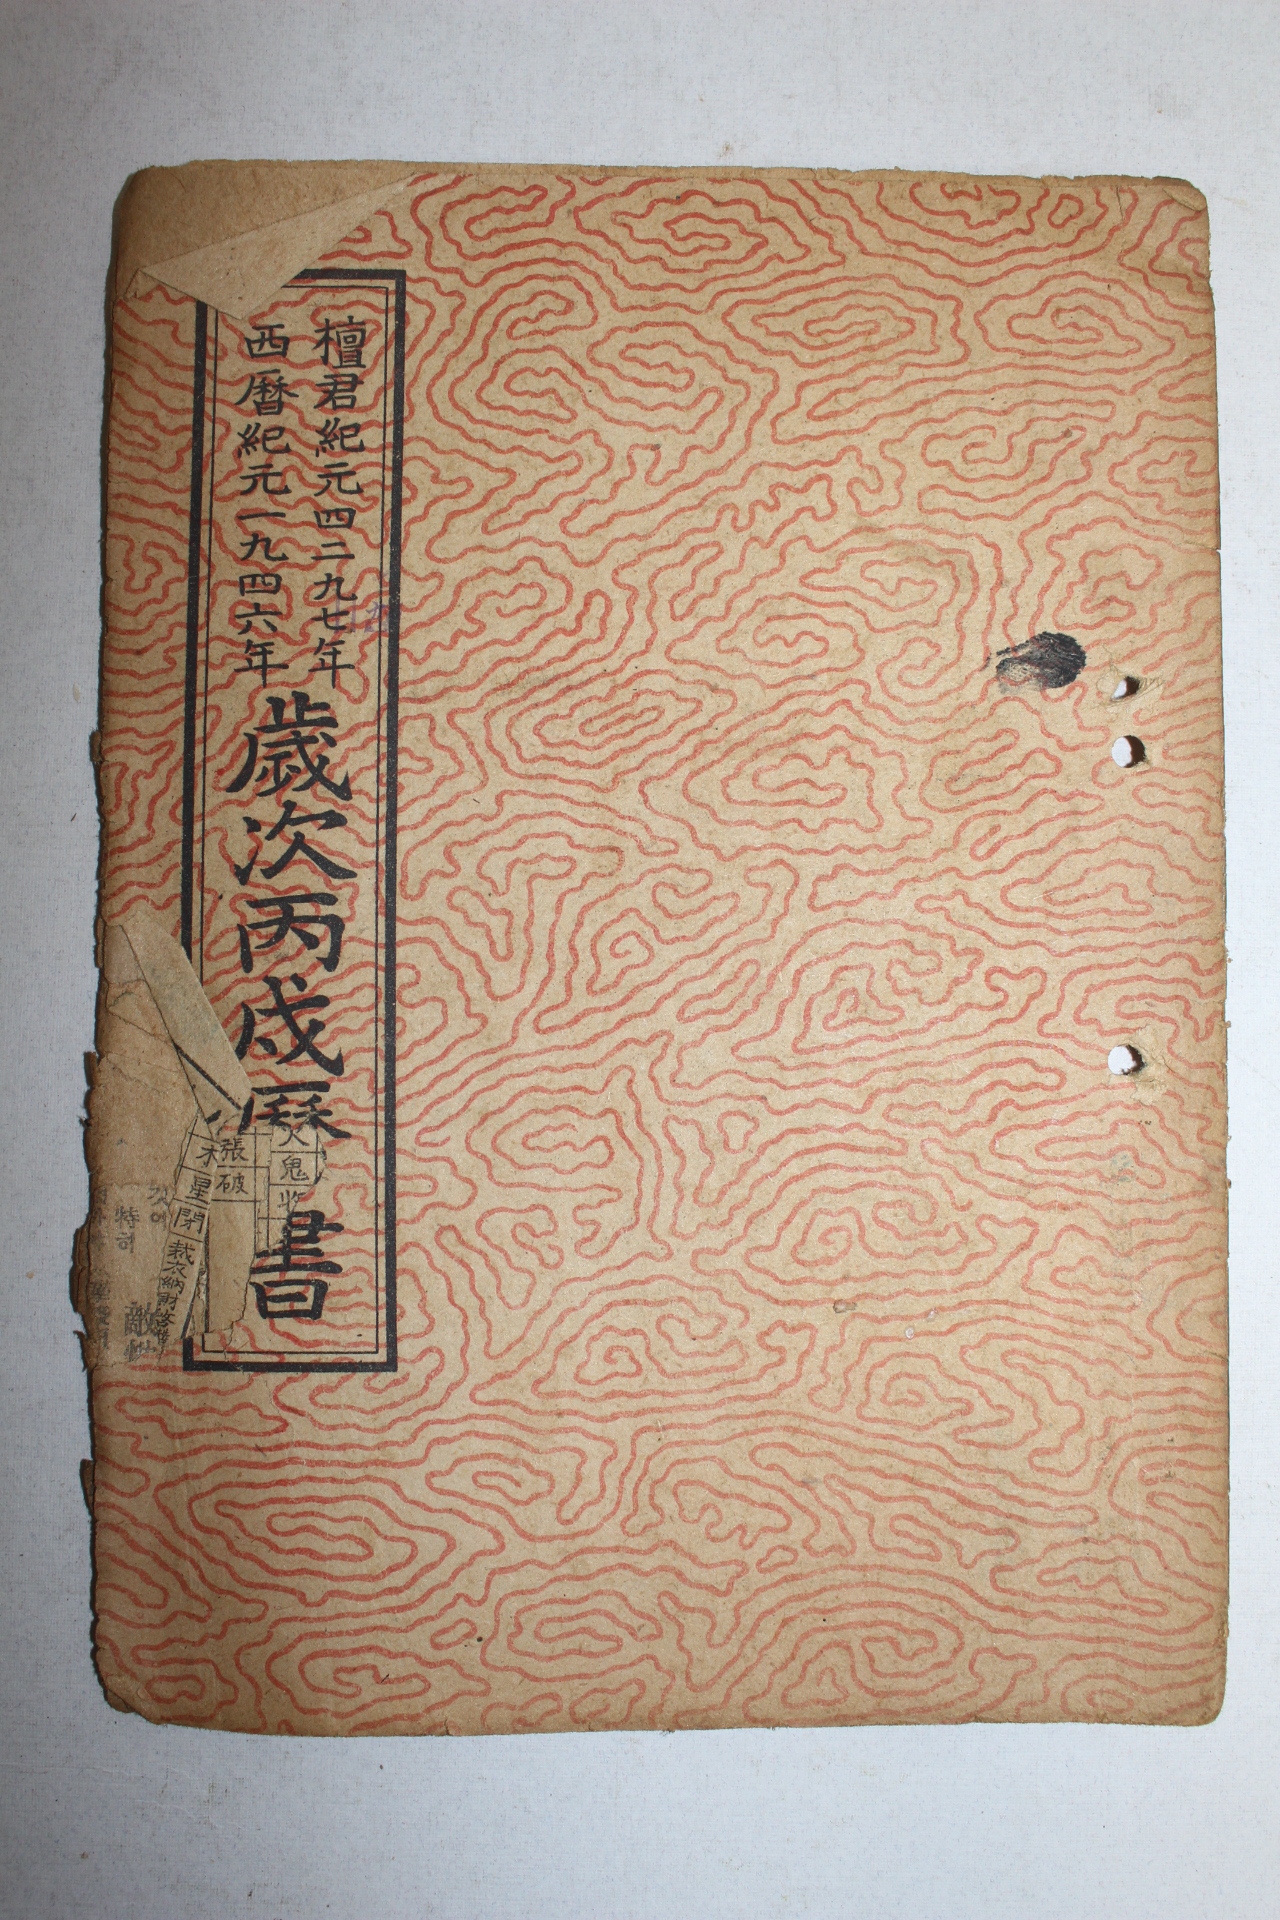 檀君紀元四二九七年
西曆紀元一九四六年
歲次丙戌曆書
火鬼收
張破
木星閉
裁衣納財
것에
特히
敵